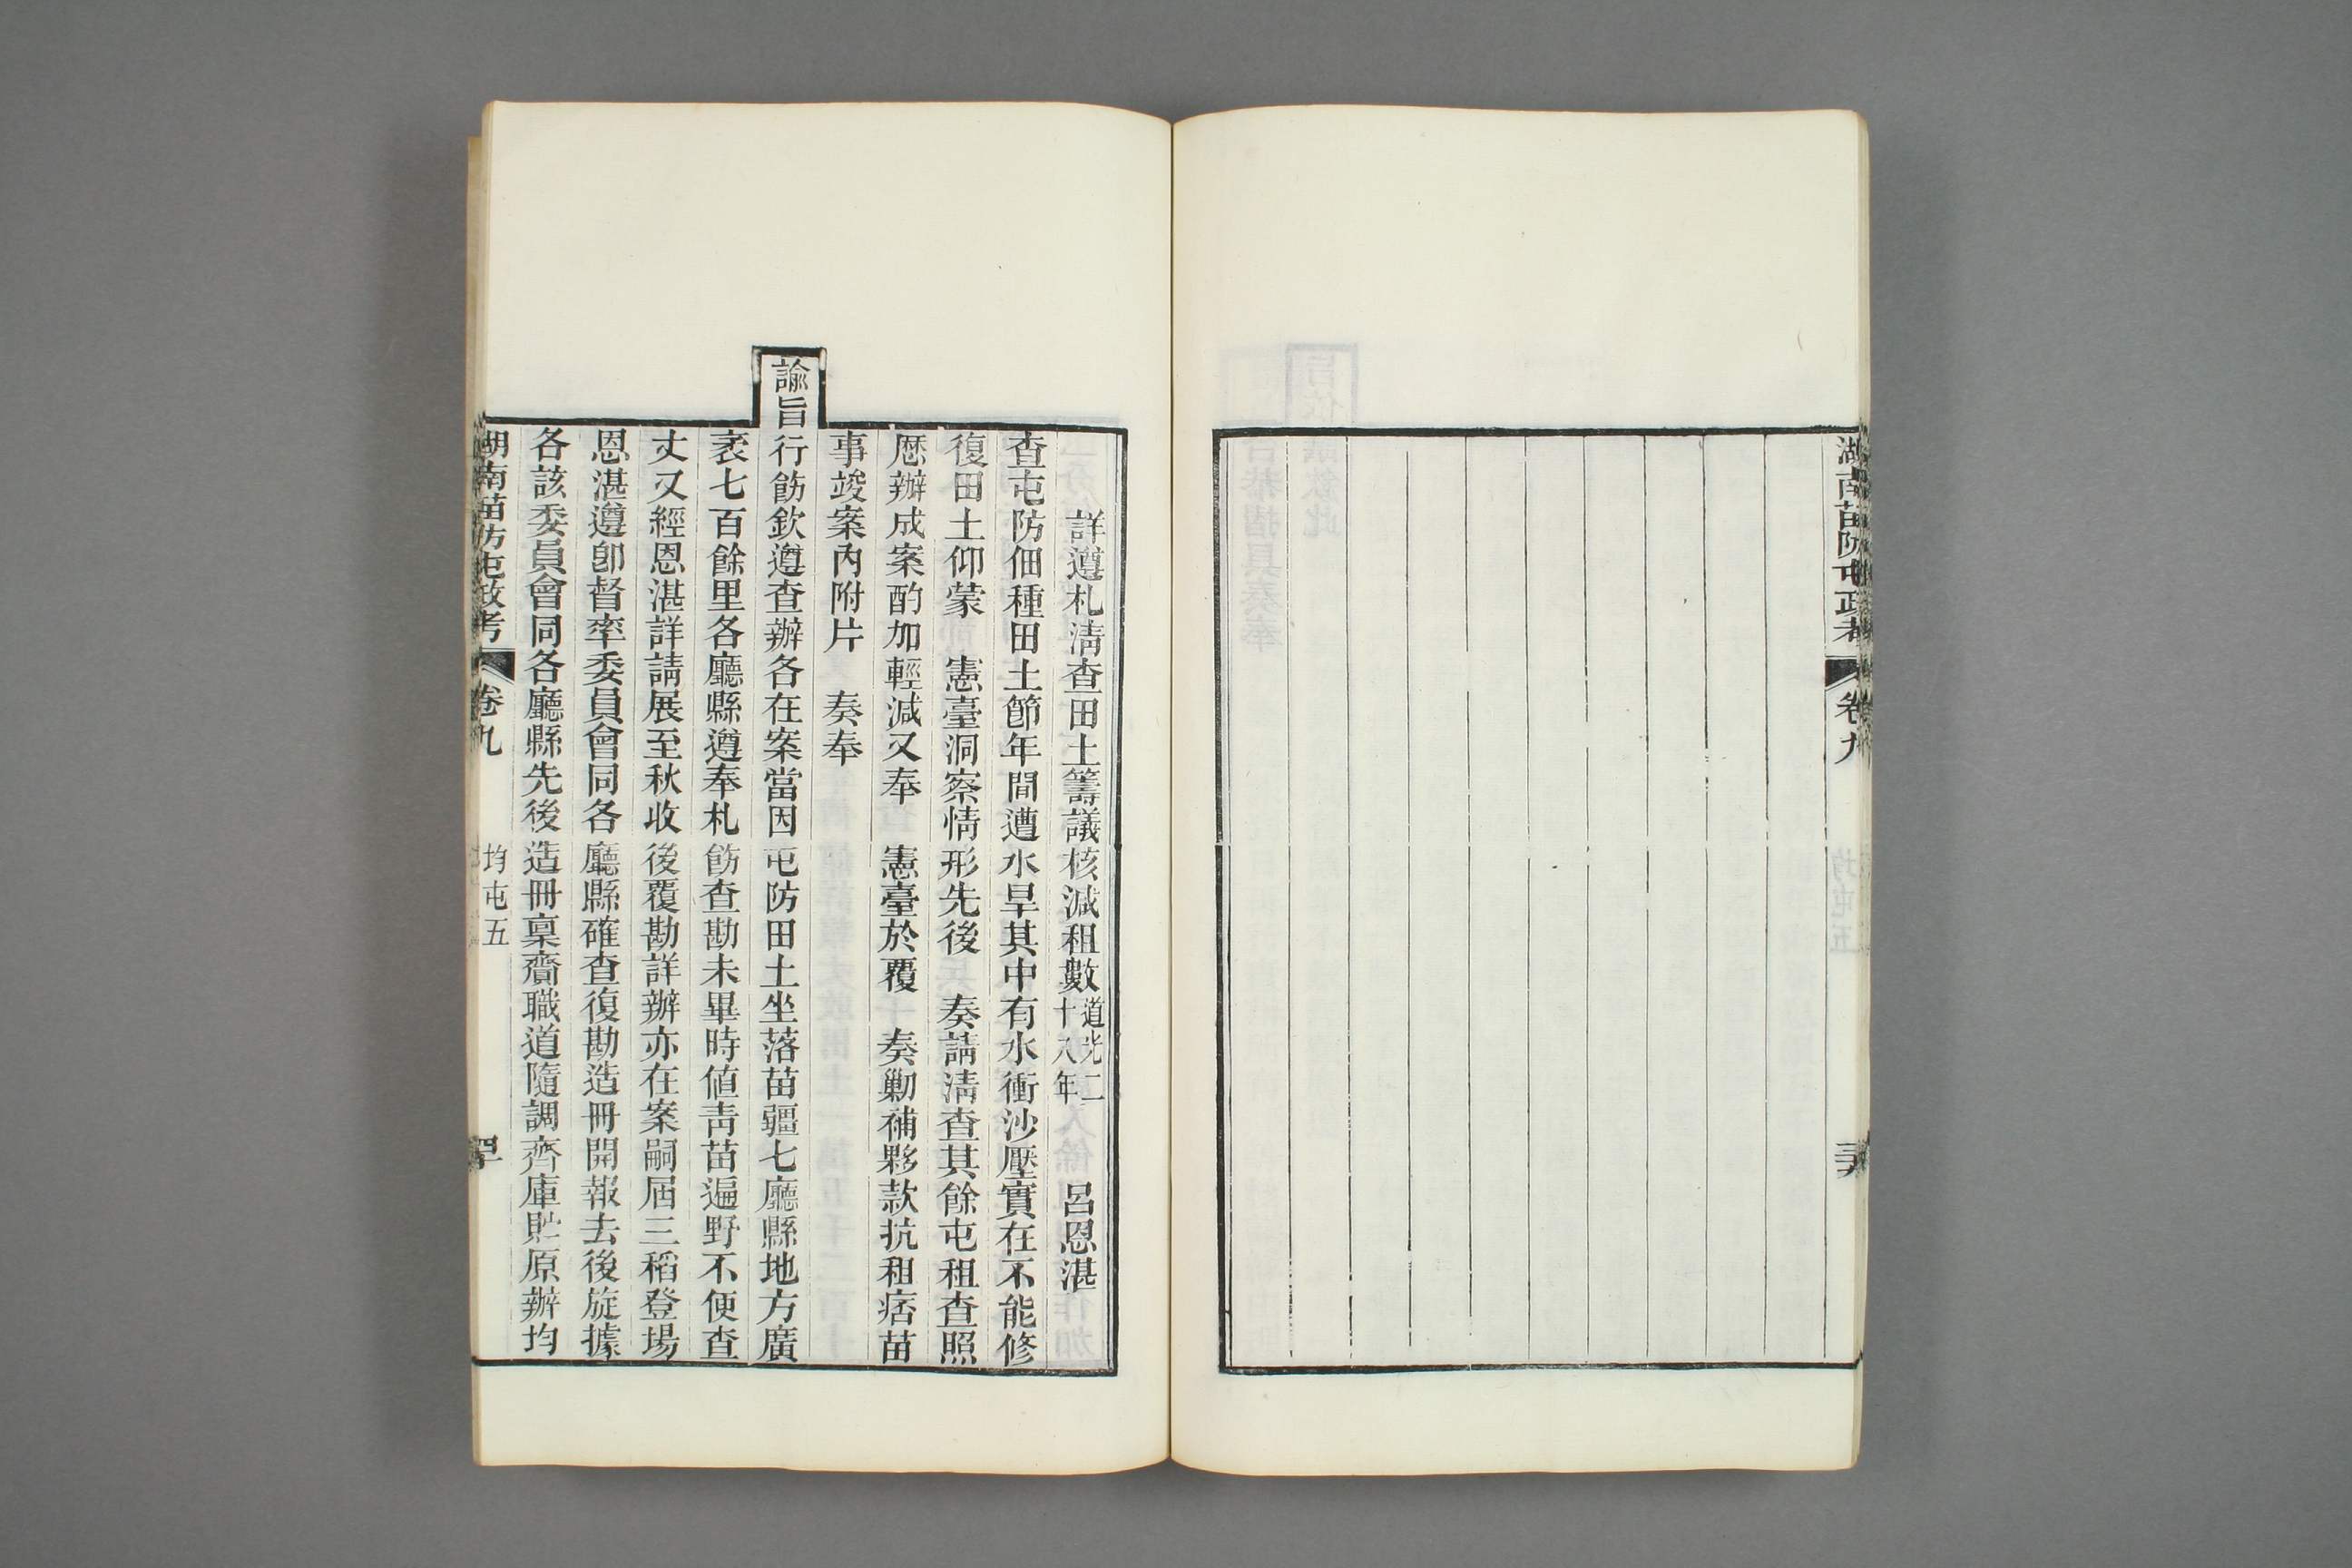 湖南苗防屯政考 卷九
詳遵札淸查田土籌議核減租數道光二十八年 呂恩湛
查屯防佃種田土節年間遭水旱其中有水衝沙壓實在不能修
復田土仰蒙 憲臺洞察情形先後 奏請淸查其餘屯租查照
歷辦成案酌加輕減又奉 憲臺於覆 奏勦補夥款抗租痞苗
事竣案內附片 奏奉
諭旨行飭欽遵查辦各在案當因屯防田土坐落苗疆七廳縣地方廣
袤七百餘里各廳縣遵奉札飭查勘未畢時値靑苗遍野不便查
丈又經恩湛詳請展至秋收後覆勘詳辦亦在案嗣屆三稻登場
恩湛遵卽督率委員會同各廳縣確查復勘造冊開報去後旋據
各該委員會同各廳縣先後造冊稟齎職道隨調齊庫貯原辦均
湖南苗防屯政考 卷九 均屯五